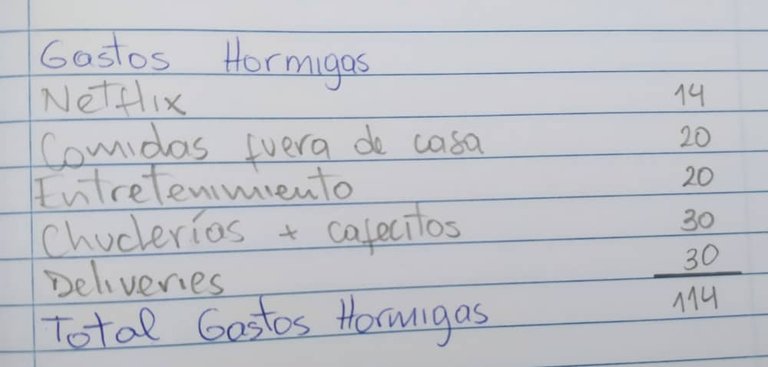 Gastos Hormigas
Netflix 14
Comidas fuera de casa 20
Entretenimiento 20
Chucherías + cafecitos 30
Deliveries 30
Total Gastos Hormigas 114